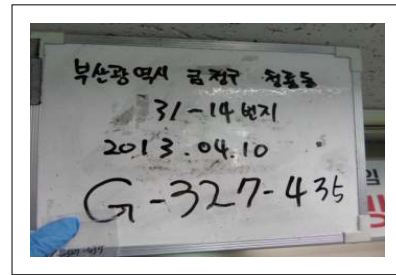 부산광역시 금정구 청룡동
31-14번지
2013.04.10
G-327-435